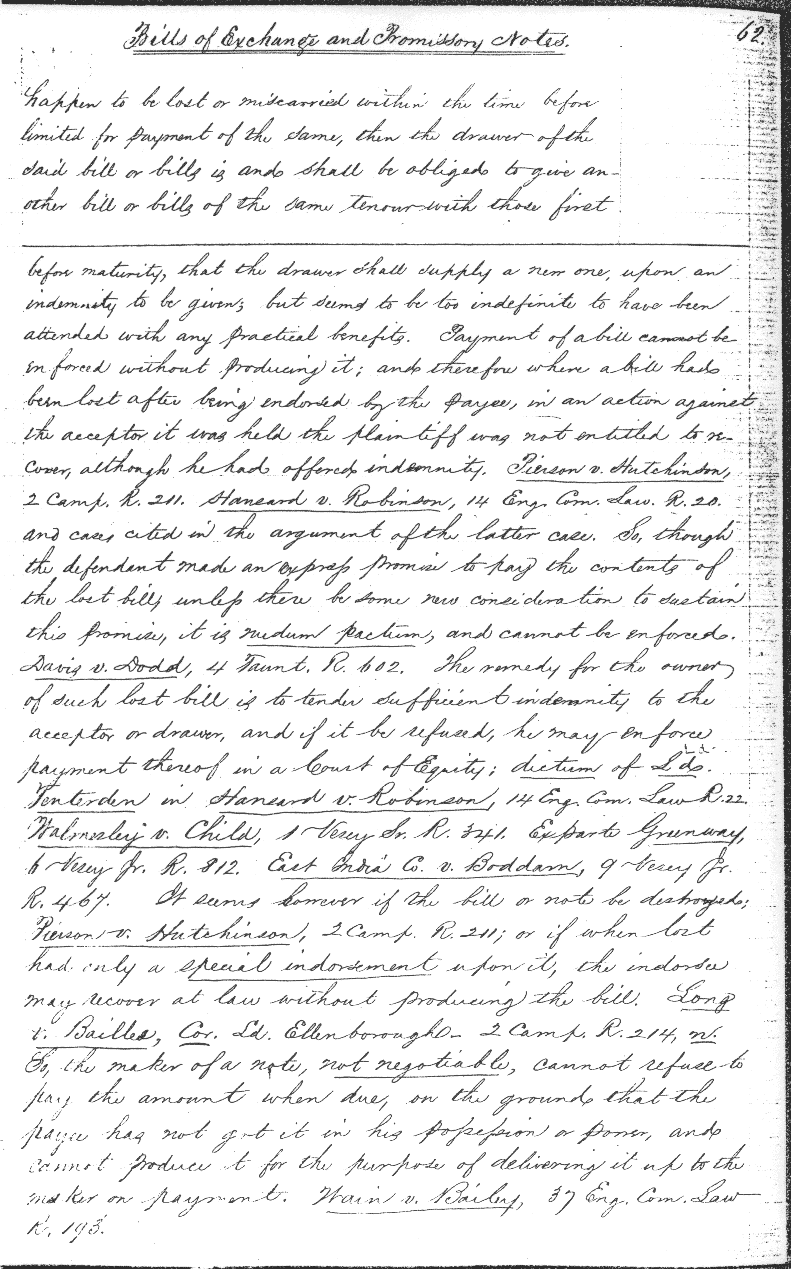 Bills of Exchange and Promissory Notes.
62.
happen to be lost or miscarried within the time before
limited for payment of the same, then the drawer of the
said bill or bills is and shall be obliged to give an-
other bill or bills of the same tenour with those first
before maturity, that the drawer shall supply a new one, upon an
indemnity to be given; but seems to be too indefinite to have been
attended with any practical benefits. Payment of a bill cannot be
enforced without producing it; and therefore where a bill had
been lost after being endorsed by the payee, in an action against
the acceptor it was held the plaintiff was not entitled to re-
cover, although he had offered indemnity. Pierson v. Hutchinson,
2 Camp. R. 211. Hansard v. Robinson, 14 Eng. Com. Law. R. 20.
and cases cited in the argument of the latter case. So, though
the defendant made an express promise to pay the contents of
the lost bill, unless there be some new consideration to sustain
this promise, it is nudum pactum, and cannot be enforced.
Davis v. Dodd, 4 Taunt. R. 602. The remedy for the owner
of such lost bill is to tender sufficient indemnity to the
acceptor or drawer, and if it be refused, he may enforce
payment thereof in a Court of Equity; dictum of Ld.
Tenterden in Hansard v. Robinson, 14 Eng. Com. Law R. 22.
Walmesley v. Child, 1 Vesey Sr. R. 341. Exparte Greenway,
6 Vesey Jr. R. 812. East India Co. v. Boddam, 9 Vesey Jr.
R. 467. It seems however if the bill or note be destroyed;
Pierson v. Hutchinson, 2 Camp. R. 211; or if when lost
had only a special indorsement upon it, the indorsee
may recover at law without producing the bill. Long
v. Bailles, Cor. Ld. Ellenborough - 2 Camp. R. 214, n.
So, the maker of a note, not negotiable, cannot refuse to
pay the amount when due, on the ground that the
payee has not got it in his possession or power, and
cannot produce it for the purpose of delivering it up to the
maker on payment. Wain v. Bailey, 37 Eng. Com. Law
R. 193.